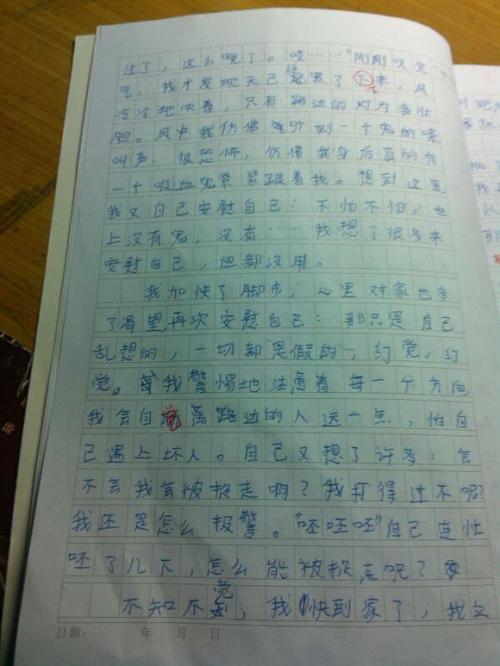 过了，这么晚了。哎……"刚刚叹完
气，我才发现天已经黑了下来，风
冷冷地吹着，只有路边的灯为我壮
胆。风中我仿佛听到一个鬼的嚎
叫声，很恐怖，仿佛我身后真的有
一个吸血鬼紧紧跟着我。想到这里
我又自己安慰自己：不怕不怕，世
上没有鬼，没有……我想了很多来
安慰自己，但都没用。
我加快了脚步，心里对家也多
了渴望，再次安慰自己：那只是自己
乱想的，一切都是假的，幻觉，幻
觉。每我警惕地注意着每一个方向
我会自觉离路边的人远一点，怕自
己遇上坏人。自己又想了许多：会
不会我会被拐走啊？我打得过不呢？
我还是怎么报警。"呸呸呸"自己连忙
呸了几下，怎么能被拐走呢？
不知不觉，我快到家了，我又
日期： 年 月 日